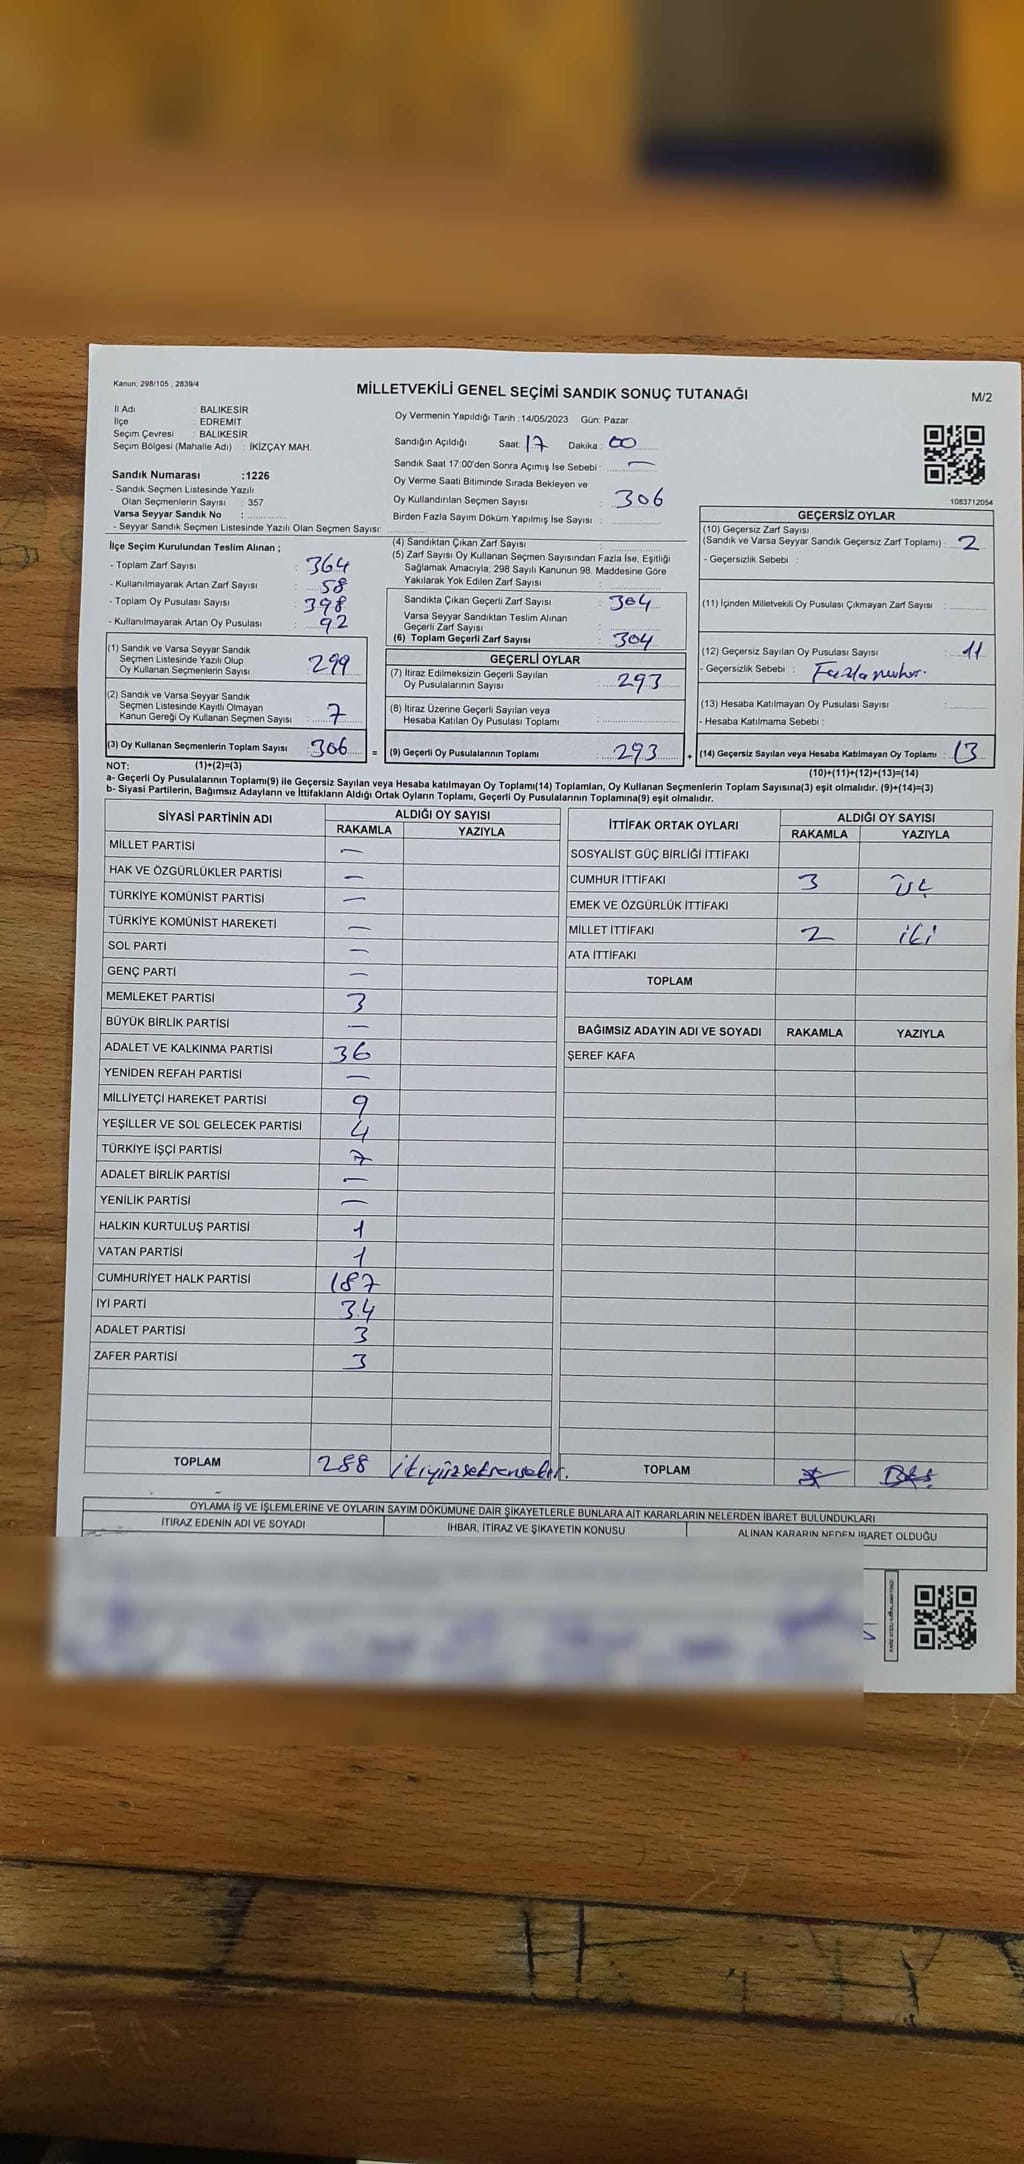 Kanun; 298/105 , 2839/4
MİLLETVEKİLİ GENEL SEÇİMİ SANDIK SONUÇ TUTANAĞI
M/2
İl Adı : BALIKESİR
İlçe : EDREMIT
Seçim Çevresi : BALIKESİR
Seçim Bölgesi (Mahalle Adı) : İKİZÇAY MAH.
Oy Vermenin Yapıldığı Tarih :14/05/2023 Gün: Pazar
Sandığın Açıldığı Saat: 17 Dakika : 00
Sandık Saat 17:00'den Sonra Açımış İse Sebebi : —
Oy Verme Saati Bitiminde Sırada Bekleyen ve
Oy Kullandırılan Seçmen Sayısı : 306
Birden Fazla Sayım Döküm Yapılmış İse Sayısı :
1083712054
Sandık Numarası :1226
- Sandık Seçmen Listesinde Yazılı
Olan Seçmenlerin Sayısı : 357
Varsa Seyyar Sandık No :
- Seyyar Sandık Seçmen Listesinde Yazılı Olan Seçmen Sayısı:
İlçe Seçim Kurulundan Teslim Alınan ;
- Toplam Zarf Sayısı : 364
- Kullanılmayarak Artan Zarf Sayısı : 58
- Toplam Oy Pusulası Sayısı : 398
- Kullanılmayarak Artan Oy Pusulası : 92
(1) Sandık ve Varsa Seyyar Sandık
Seçmen Listesinde Yazılı Olup
Oy Kullanan Seçmenlerin Sayısı : 299
(2) Sandık ve Varsa Seyyar Sandık
Seçmen Listesinde Kayıtlı Olmayan
Kanun Gereği Oy Kullanan Seçmen Sayısı : 7
(3) Oy Kullanan Seçmenlerin Toplam Sayısı : 306 =
(4) Sandıktan Çıkan Zarf Sayısı :
(5) Zarf Sayısı Oy Kullanan Seçmen Sayısından Fazla İse, Eşitliği
Sağlamak Amacıyla; 298 Sayılı Kanunun 98. Maddesine Göre
Yakılarak Yok Edilen Zarf Sayısı :
Sandıkta Çıkan Geçerli Zarf Sayısı : 304
Varsa Seyyar Sandıktan Teslim Alınan
Geçerli Zarf Sayısı :
(6) Toplam Geçerli Zarf Sayısı : 304
GEÇERLİ OYLAR
(7) İtiraz Edilmeksizin Geçerli Sayılan
Oy Pusulalarının Sayısı : 293
(8) İtiraz Üzerine Geçerli Sayılan veya
Hesaba Katılan Oy Pusulası Toplamı :
(9) Geçerli Oy Pusulalarının Toplamı : 293 +
GEÇERSİZ OYLAR
(10) Geçersiz Zarf Sayısı
(Sandık ve Varsa Seyyar Sandık Geçersiz Zarf Toplamı) : 2
- Geçersizlik Sebebi :
(11) İçinden Milletvekili Oy Pusulası Çıkmayan Zarf Sayısı :
(12) Geçersiz Sayılan Oy Pusulası Sayısı : 11
- Geçersizlik Sebebi : Fazla mühür.
(13) Hesaba Katılmayan Oy Pusulası Sayısı :
- Hesaba Katılmama Sebebi :
(14) Geçersiz Sayılan veya Hesaba Katılmayan Oy Toplamı : 13
NOT: (1)+(2)=(3)
(10)+(11)+(12)+(13)=(14)
a- Geçerli Oy Pusulalarının Toplamı(9) ile Geçersiz Sayılan veya Hesaba katılmayan Oy Toplamı(14) Toplamları, Oy Kullanan Seçmenlerin Toplam Sayısına(3) eşit olmalıdır. (9)+(14)=(3)
b- Siyasi Partilerin, Bağımsız Adayların ve İttifakların Aldığı Ortak Oyların Toplamı, Geçerli Oy Pusulalarının Toplamına(9) eşit olmalıdır.
SİYASİ PARTİNİN ADI ALDIĞI OY SAYISI
RAKAMLA YAZIYLA
MİLLET PARTİSİ —
HAK VE ÖZGÜRLÜKLER PARTİSİ —
TÜRKİYE KOMÜNİST PARTİSİ —
TÜRKİYE KOMÜNİST HAREKETİ —
SOL PARTİ —
GENÇ PARTİ —
MEMLEKET PARTİSİ 3
BÜYÜK BİRLİK PARTİSİ —
ADALET VE KALKINMA PARTİSİ 36
YENİDEN REFAH PARTİSİ —
MİLLİYETÇİ HAREKET PARTİSİ 9
YEŞİLLER VE SOL GELECEK PARTİSİ 4
TÜRKİYE İŞÇİ PARTİSİ 7
ADALET BİRLİK PARTİSİ —
YENİLİK PARTİSİ —
HALKIN KURTULUŞ PARTİSİ 1
VATAN PARTİSİ 1
CUMHURİYET HALK PARTİSİ 187
İYİ PARTİ 34
ADALET PARTİSİ 3
ZAFER PARTİSİ 3
TOPLAM 288 ikiyüzseksensekiz.
İTTİFAK ORTAK OYLARI ALDIĞI OY SAYISI
RAKAMLA YAZIYLA
SOSYALİST GÜÇ BİRLİĞİ İTTİFAKI
CUMHUR İTTİFAKI 3 üç
EMEK VE ÖZGÜRLÜK İTTİFAKI
MİLLET İTTİFAKI 2 iki
ATA İTTİFAKI
TOPLAM
BAĞIMSIZ ADAYIN ADI VE SOYADI RAKAMLA YAZIYLA
ŞEREF KAFA
TOPLAM
OYLAMA İŞ VE İŞLEMLERİNE VE OYLARIN SAYIM DÖKÜMÜNE DAİR ŞİKAYETLERLE BUNLARA AİT KARARLARIN NELERDEN İBARET BULUNDUKLARI
İTİRAZ EDENİN ADI VE SOYADI İHBAR, İTİRAZ VE ŞİKAYETİN KONUSU ALINAN KARARIN NEDEN İBARET OLDUĞU